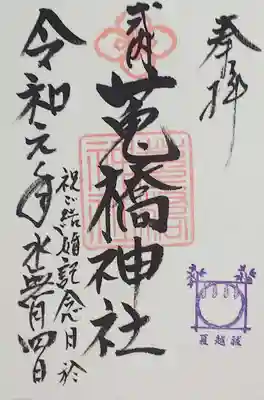 奉拝
式内
莵橋神社
祝ご結婚記念日於
令和元年水無月四日
夏越祓